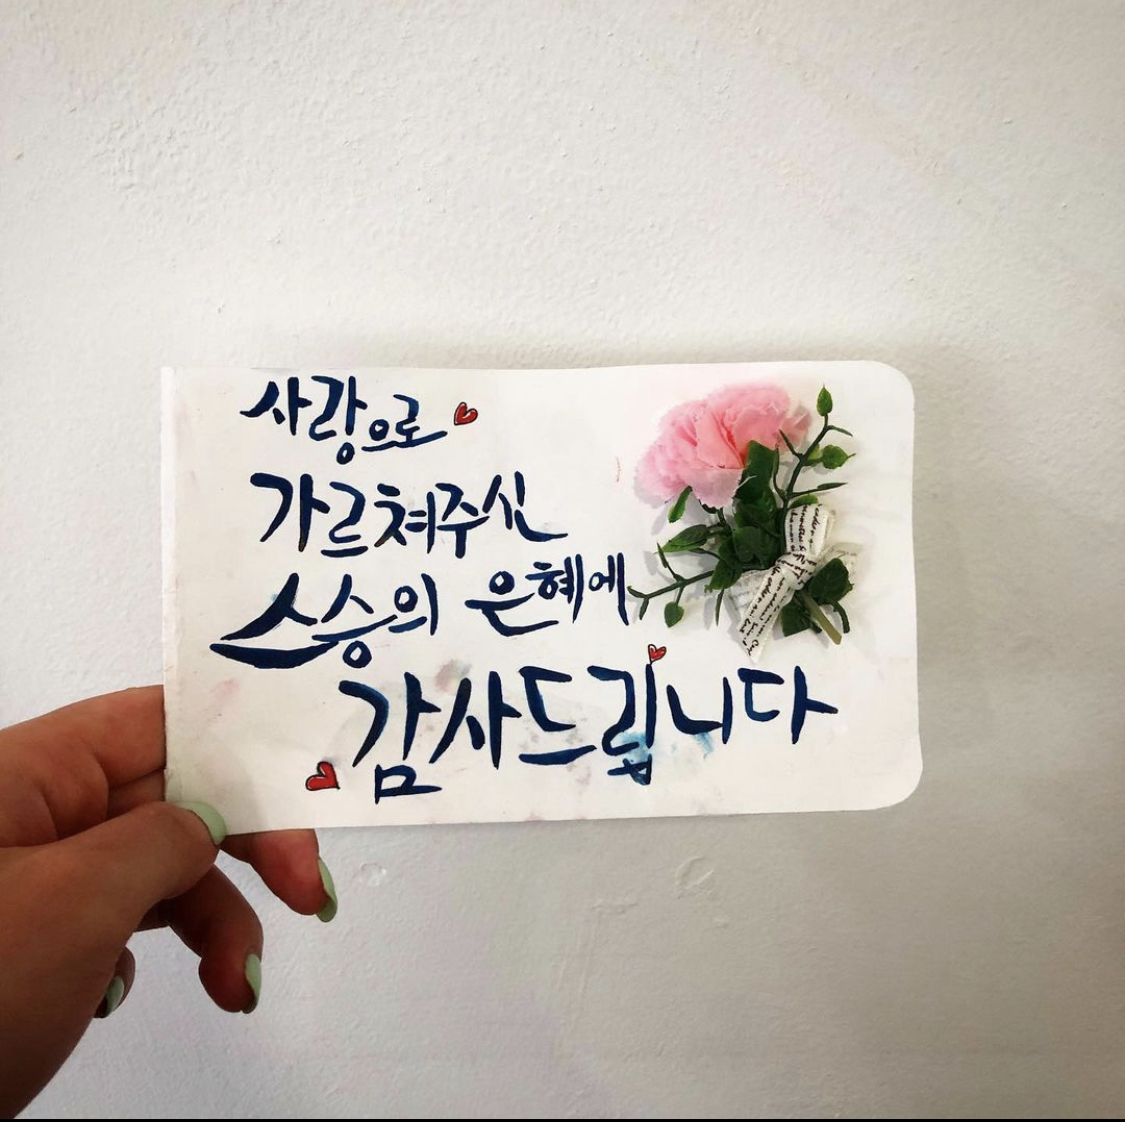 사랑으로
가르쳐주신
스승의 은혜에
감사드립니다